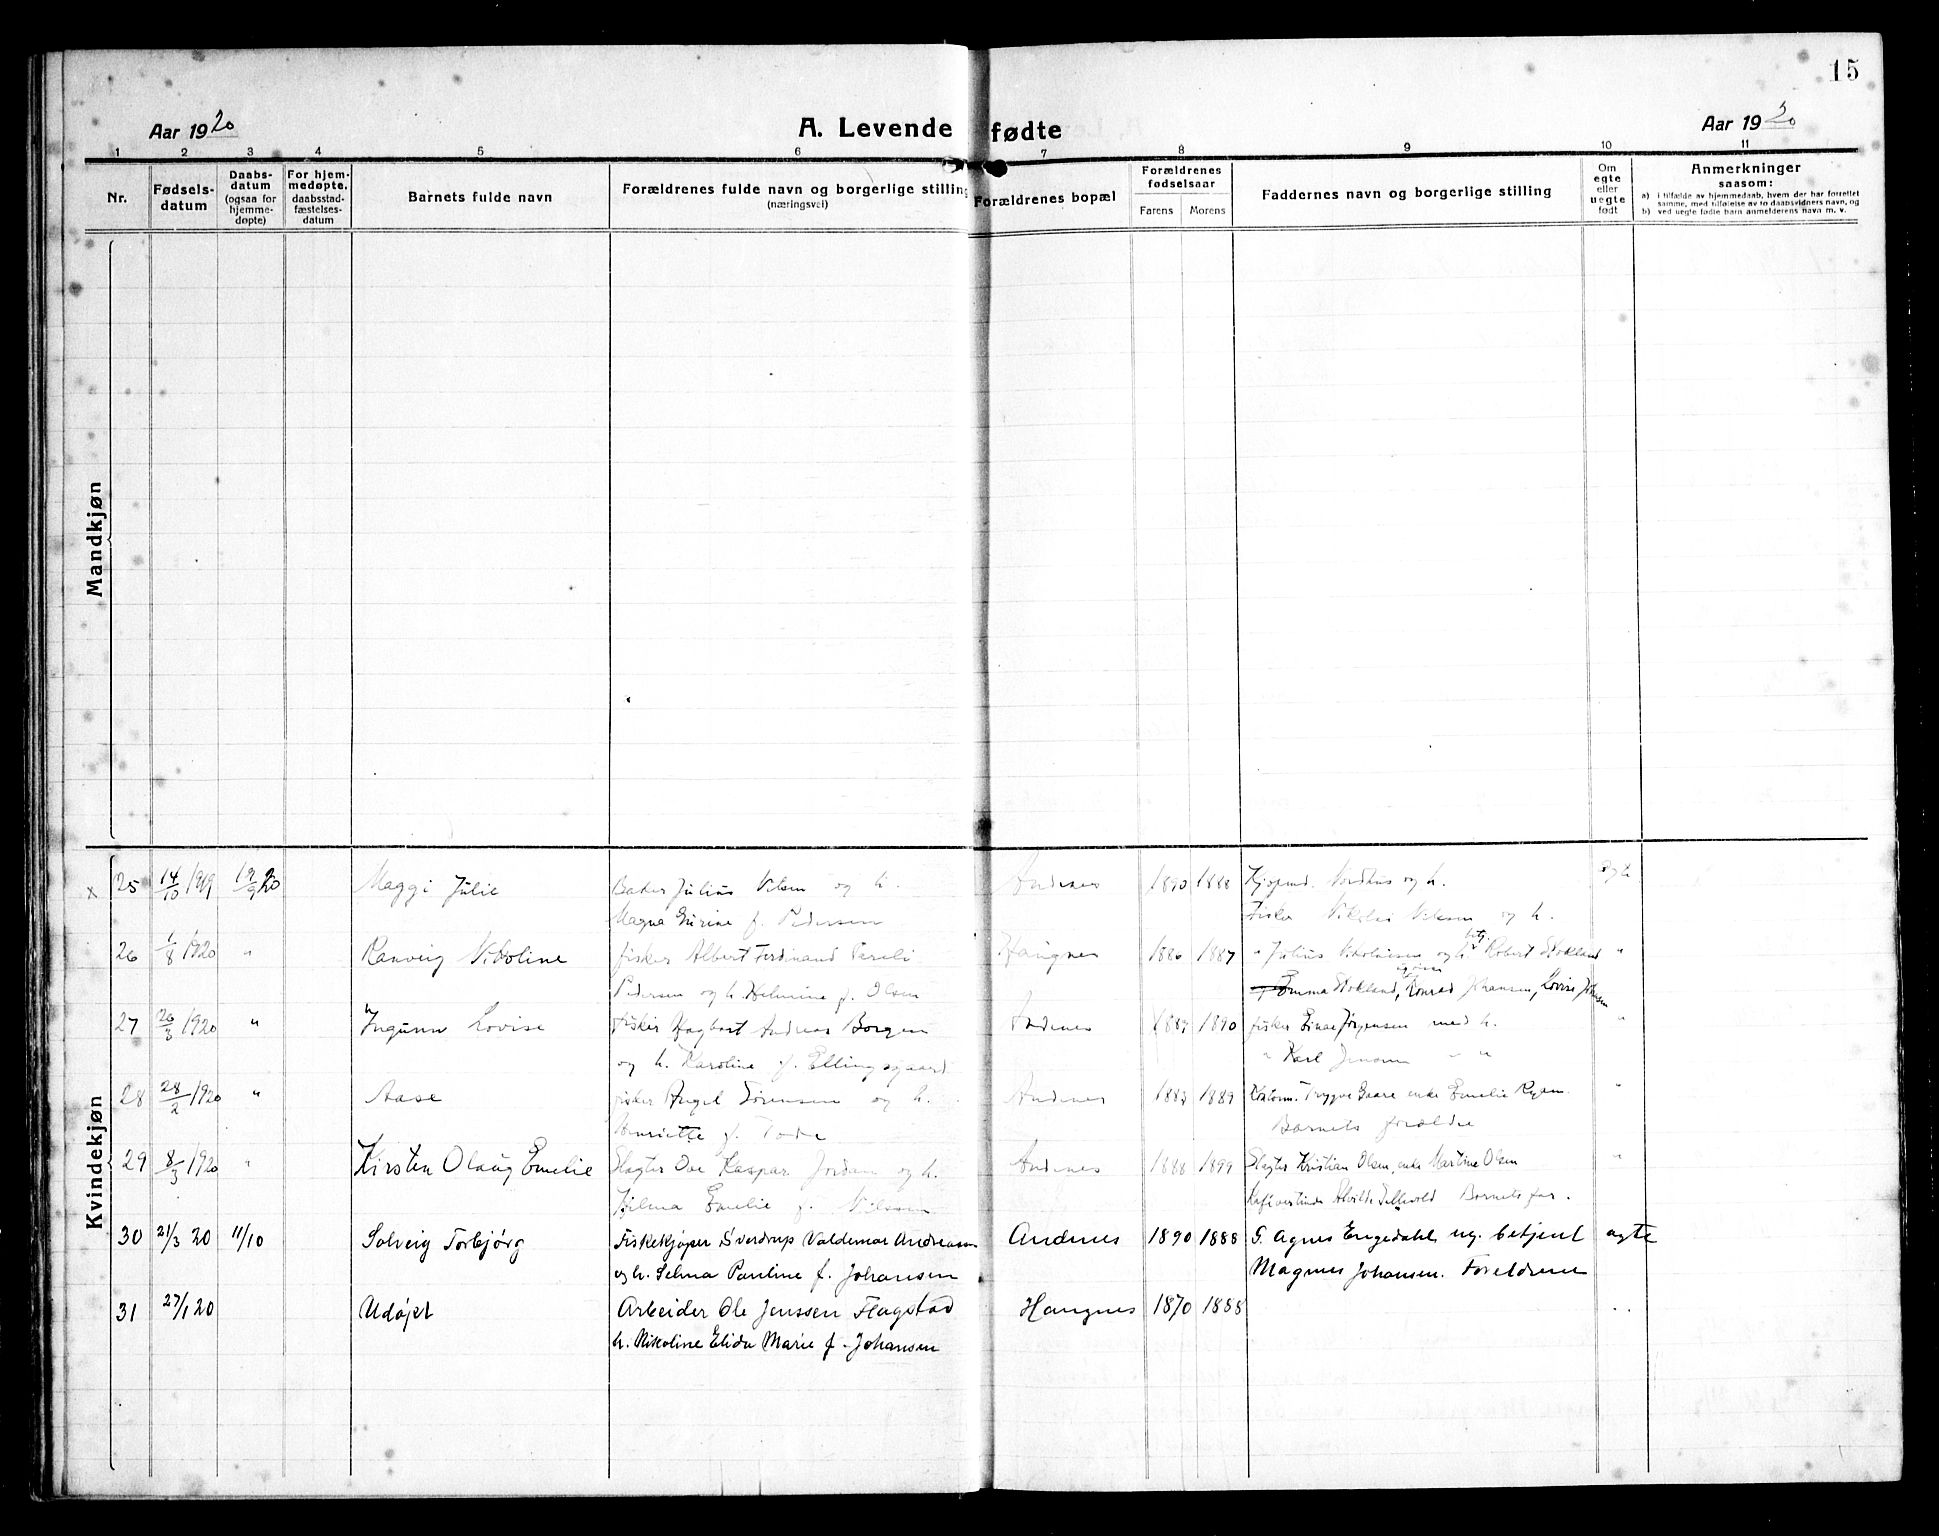 15
Aar 1920
A. Levende fødte
Aar 1920
1 2 3 4 5 6 7 8 9 10 11
Nr.
Fødselsdatum
Daabsdatum (ogsaa for hjemmedøpte)
For hjemmedøpte, daabsstadfæstelsesdatum
Barnets fulde navn
Forældrenes fulde navn og borgerlige stilling (næringsvei)
Forældrenes bopæl
Forældrenes fødselsaar
Farens Morens
Faddernes navn og borgerlige stilling
Om egte eller uegte født
Anmerkninger saasom:
a) i tilfælde av hjemmedaab, hvem der har forrettet samme, med tilføielse av to daabsvidners navn, og
b) ved uegte fødte barn anmelderens navn m. v.
Mandkjøn
Kvindekjøn
x 25 14/10 1919 19/9 20 Maggi Julie Baker Julius Nilsen og h. Andenes 1890 1888 Nordhus og h.
Magna f. Pedersen Fisker Nikolai Nilsen og h.
26 1/8 1920 " Ranveig Nikoline fisker Albert Ferdinand Haugnes 1886 1887 " Julius og h. Robert Stokland "
Pedersen og h. Helmine f. Olsen Emma Stokland, Konrad Johansen, Lovise
27 26/3 1920 " Ingunn Lovise fisker Hagbart Andreas Borgen Andenes 1889 1890 fisker Einar Jørgensen med h. "
og h. Karoline f. Ellingsgaard " Karl Jensen " "
28 28/2 1920 " Aase fisker Angel Sørensen og h. Andenes 1883 1889 Trygve Gaare enke Emelie "
Henriette f. Barnets forældre
29 8/3 1920 " Kirsten Olaug Emelie Slagter Ove Kaspar Jordan og h. Andenes 1888 1899 Slagter Kristian Olsen, enke Martine Olsen "
Hilma Emelie f. Nilssen Barnets far.
30 21/3 20 11/10 Solveig Torbjørg Fiskekjøper Sverdrup Valdemar Andreasen Andenes 1890 1888 G. Agnes Engedahl ug. betjent ægte
og h. Selma Pauline f. Johansen Magnus Johansen. Foreldrene
31 27/1 20 Udøpt Arbeider Ole Jenssen Flagstad Haugnes 1870 1888 "
h. Nikoline Elida Marie f. Johansen